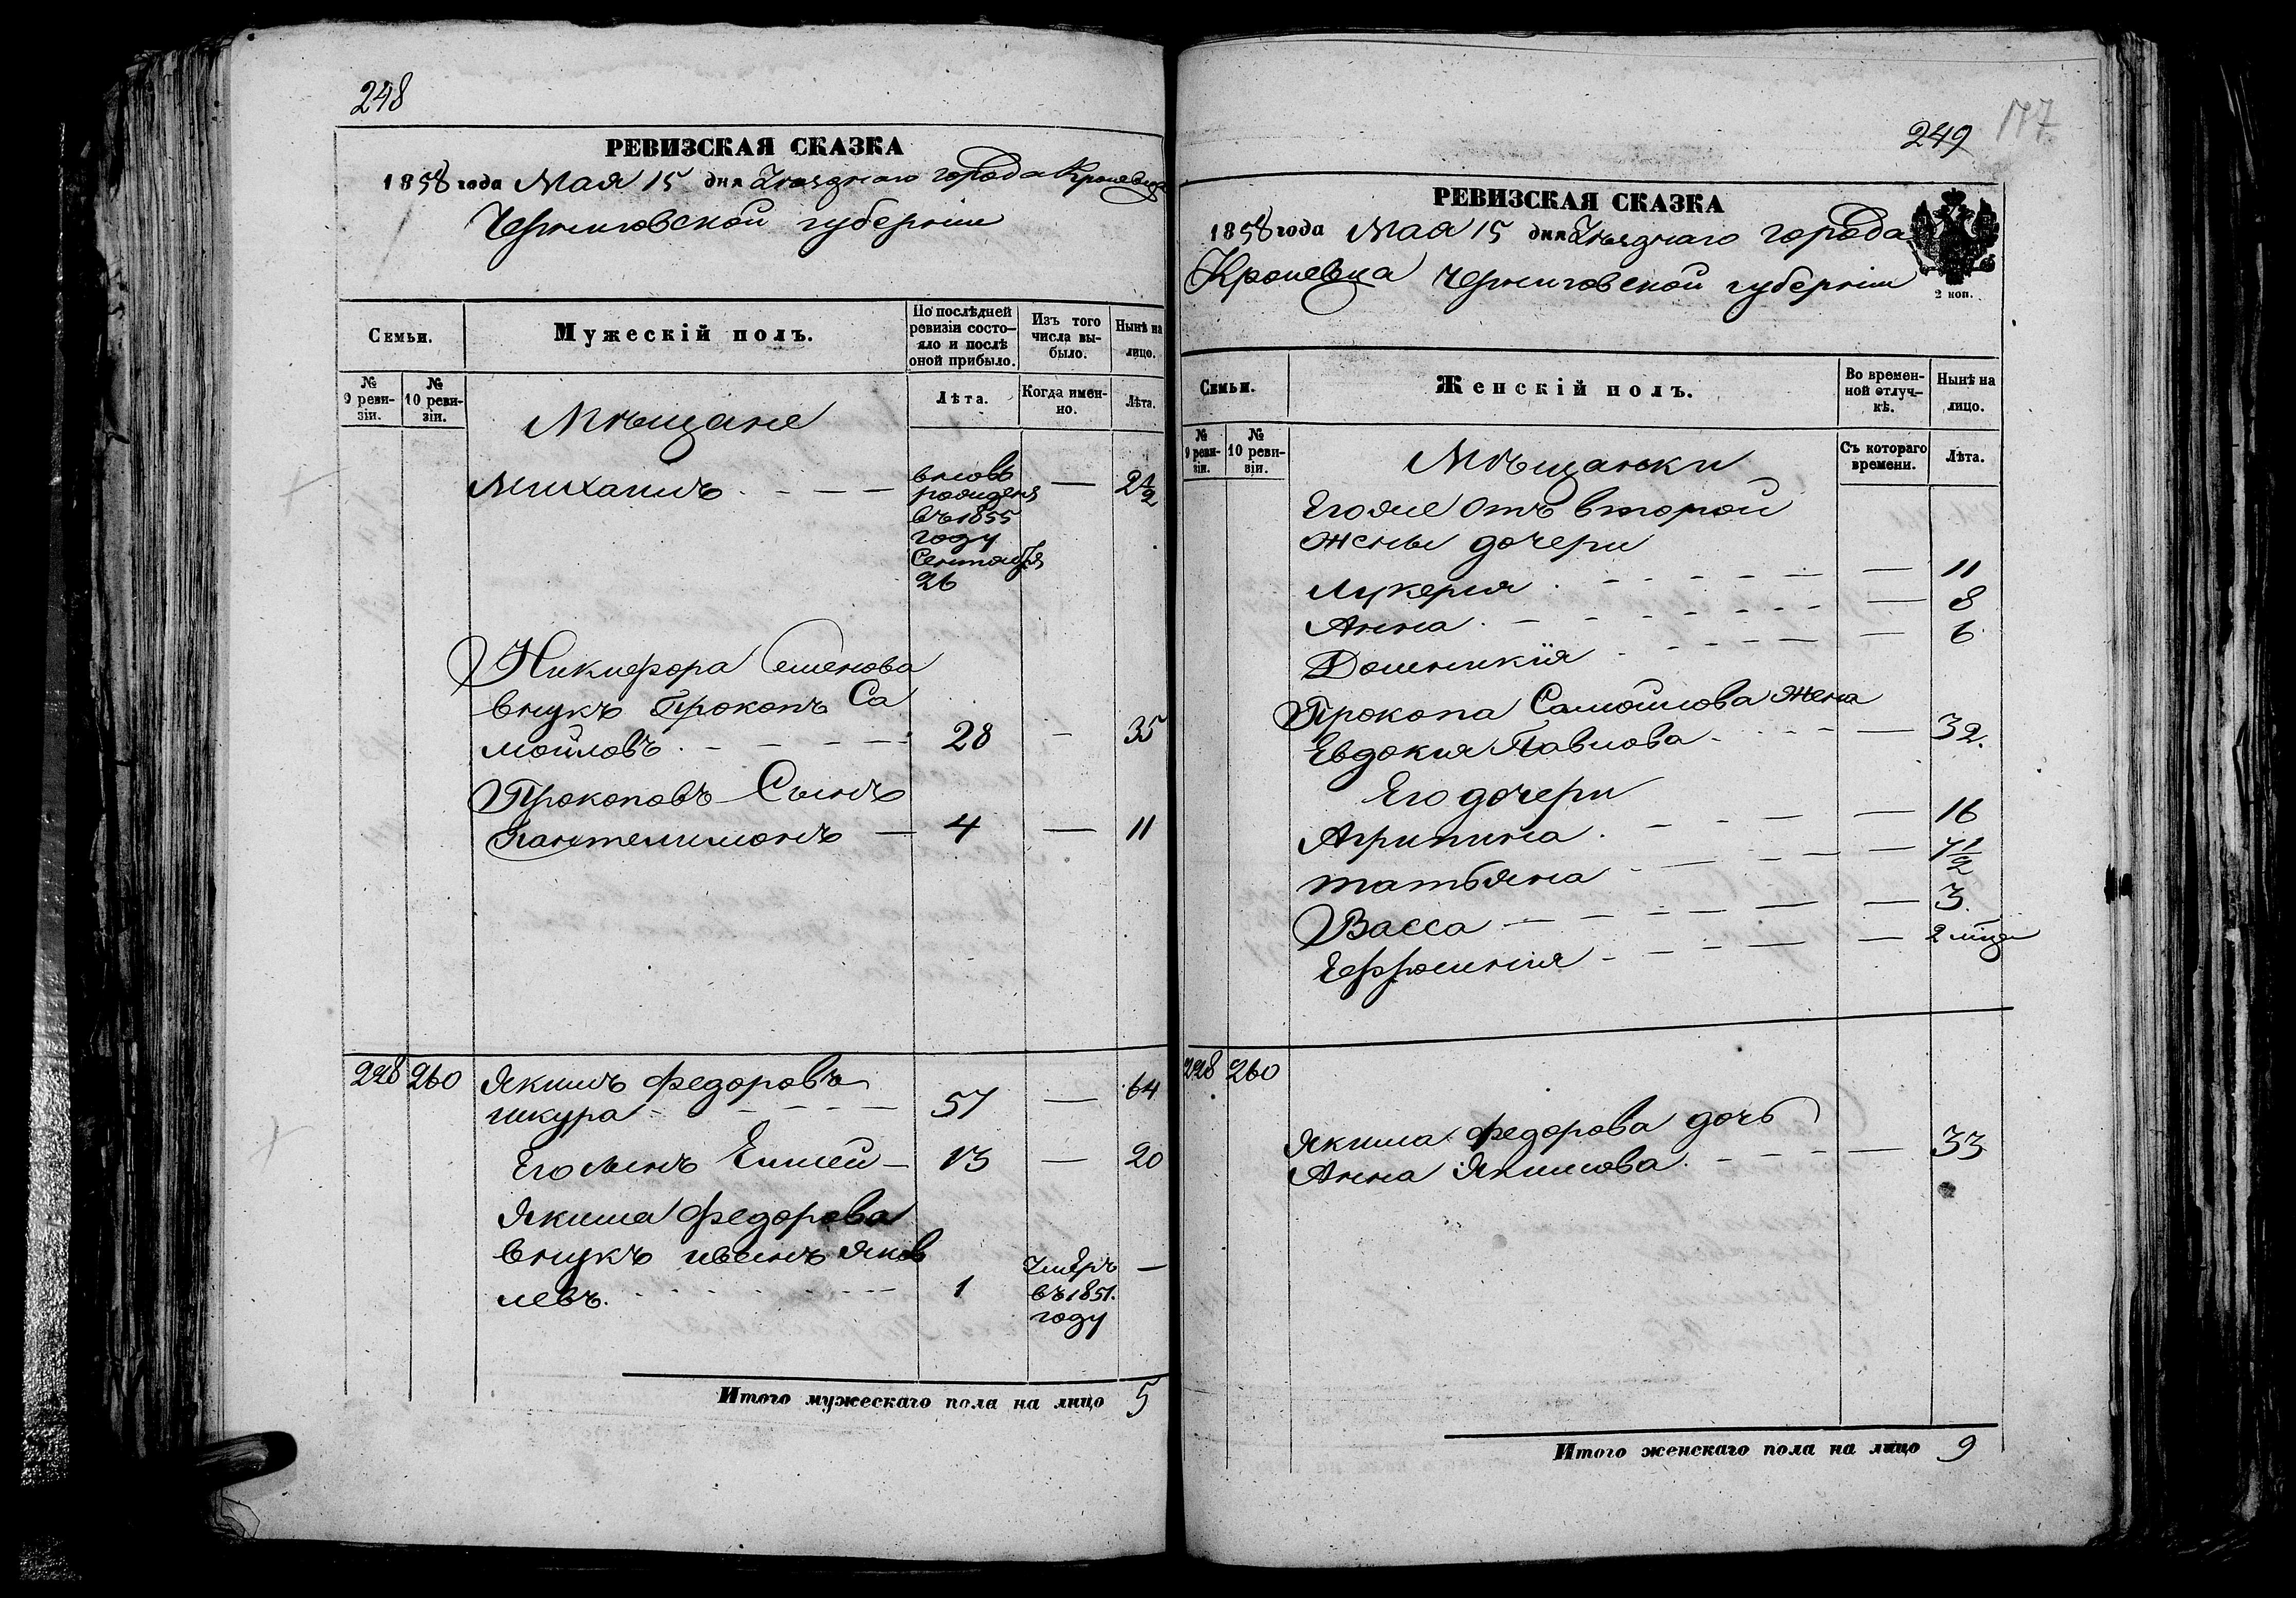 248
РЕВИЗСКАЯ СКАЗКА
1858 года Мая 15 дня Уѣзднаго города Кролевца
Черниговской губерніи
Семьи.
Мужескій полъ.
По послѣдней ревизіи состояло и послѣ оной прибыло.
Изъ того числа выбыло.
Нынѣ на лицо.
№ 9 ревизіи.
№ 10 ревизіи.
Мѣщане
Лѣта.
Когда именно.
Лѣта.
Михаилъ — вновь рожденъ въ 1855 году Сентября 26 — 2 1/2
Никифора Семенова
внукъ Прокопъ Са
мойловъ — 28 — 35
Прокоповъ Сынъ
Пантелимонъ — 4 — 11
228 260 Якимъ Федоровъ
шкура — 57 — 64
Его сынъ Елисей — 13 — 20
Якима Федорова
внукъ Яков
левъ. — 1 Умеръ въ 1851. году —
Итого мужескаго пола на лицо 5
249
РЕВИЗСКАЯ СКАЗКА
1858 года Мая 15 дня Уѣзднаго города
Кролевца Черниговской губерніи
2 коп.
Семьи.
Женскій полъ.
Во временной отлучкѣ.
Нынѣ на лицо.
№ 9 ревизіи.
№ 10 ревизіи.
Мѣщанки
Съ котораго времени.
Лѣта.
Его же отъ второй
жены дочери
Лукерия — — 11
Анна — — 8
Доминикія — — 6
Прокопа Самойлова жена
Евдокия Павлова — — 32.
Его дочери
Агрипина — — 16
татьяна — — 7 1/2
Васса — — 3.
Ефросиния — — 2 мца
228 260
Якима Федорова дочь
Анна Якимова. — — 33
Итого женскаго пола на лицо 9